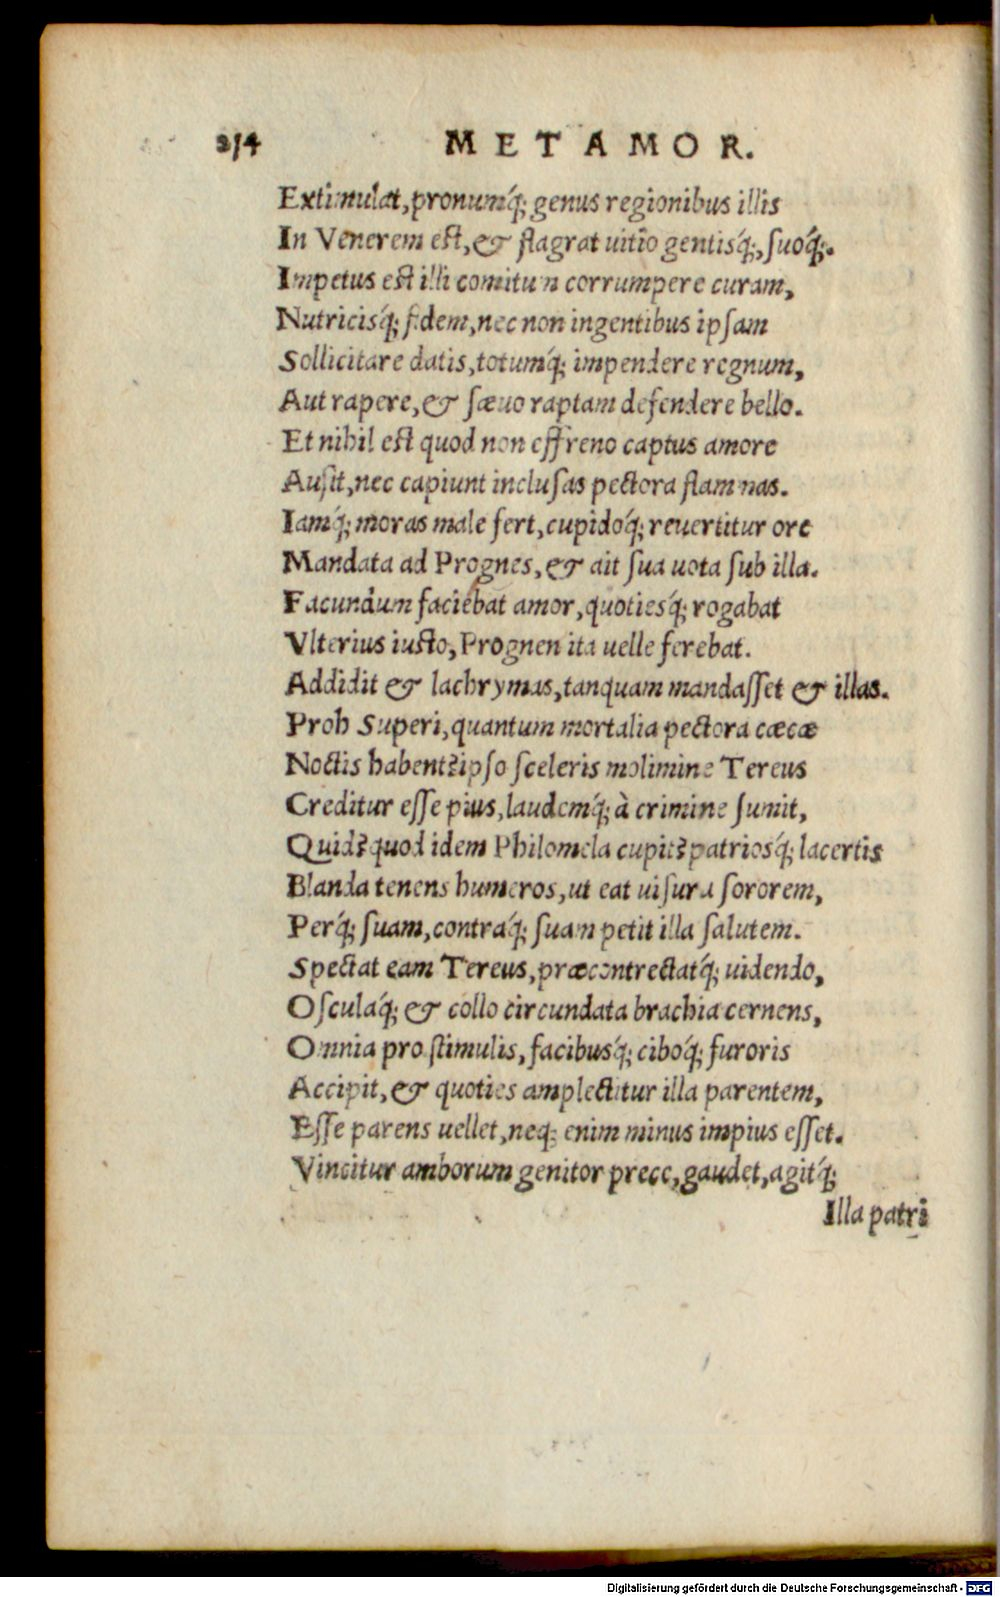 254 METAMOR.
Extimulat,pronumq́; genus regionibus illis
In Venerem est,& flagrat uitio gentisq́;,suoq́;.
Impetus est illi comitum corrumpere curam,
Nutricisq́; fidem,nec non ingentibus ipsam
Sollicitare datis,totumq́; impendere regnum,
Aut rapere,& sæuo raptam defendere bello.
Et nihil est quod non effreno captus amore
Ausit,nec capiunt inclusas pectora flammas.
Iamq́; moras male fert,cupidoq́; reuertitur ore
Mandata ad Prognes,& ait sua uota sub illa.
Facundum faciebat amor,quotiesq́; rogabat
Vlterius iusto,Prognen ita uelle ferebat.
Addidit & lachrymas,tanquam mandasset & illas.
Proh Superi,quantum mortalia pectora cæcæ
Noctis habent?ipso sceleris molimine Tereus
Creditur esse pius,laudemq́; à crimine sumit,
Quid?quod idem Philomela cupit?patriosq́; lacertis
Blanda tenens humeros,ut eat uisura sororem,
Perq́; suam,contraq́; suam petit illa salutem.
Spectat eam Tereus,præcontrectatq́; uidendo,
Osculaq́; & collo circundata brachia cernens,
Omnia pro stimulis,facibusq́; ciboq́; furoris
Accipit,& quoties amplectitur illa parentem,
Esse parens uellet,neq; enim minus impius esset.
Vincitur amborum genitor prece,gaudet,agitq́;
Illa patri
Digitalisierung gefördert durch die Deutsche Forschungsgemeinschaft - DFG